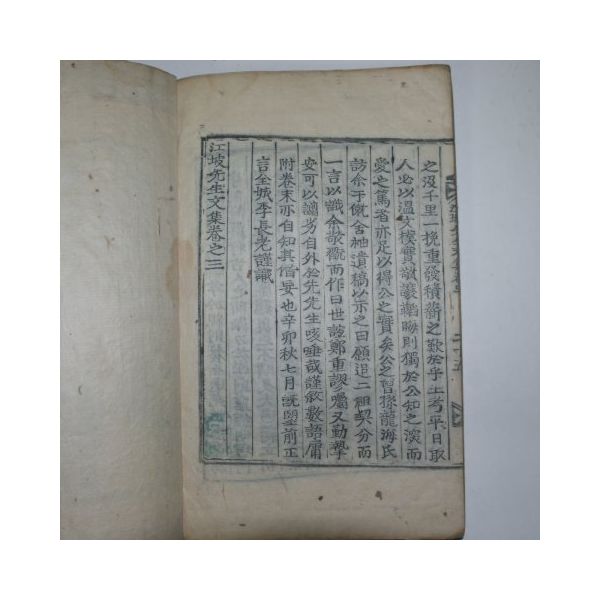 之沒千里一挽重發積薪之歎於乎士考平日取
人必以溫文樸實韜晦則獨於公知之深而
愛之篤省亦足以得公之實矣公之曾孫龍海氏
訪余于僦舍袖遺稿以示之曰願追二祖契分而
一言以識余斂衽而作曰世誼鄭重謬囑又動摯
安可以讕劣自外於先先生咳唾哉謹敘數語庸
附卷末亦自知其僭妄也辛卯秋七月旣望前正
言全城李長老謹識
江坡先生文集卷之三